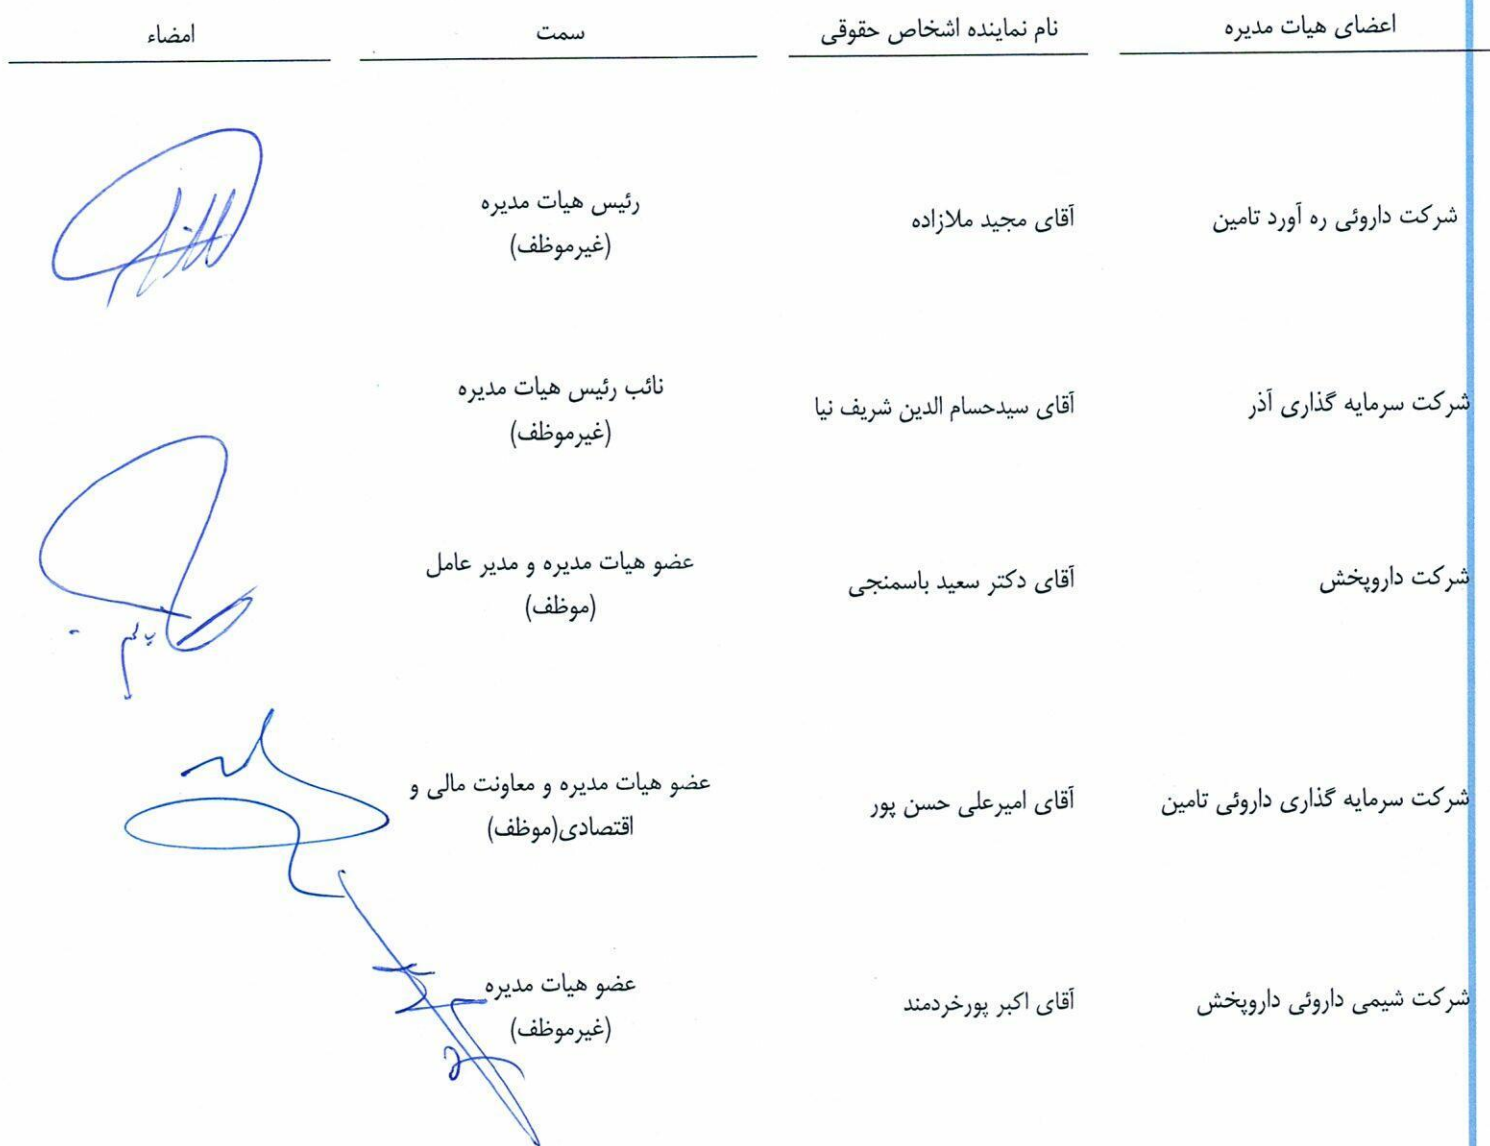 اعضای هیات مدیره
نام نماینده اشخاص حقوقی
سمت
امضاء
شرکت داروئی ره آورد تامین
آقای مجید ملازاده
رئیس هیات مدیره
(غیرموظف)
شرکت سرمایه گذاری آذر
آقای سیدحسام الدین شریف نیا
نائب رئیس هیات مدیره
(غیرموظف)
شرکت داروپخش
آقای دکتر سعید باسمنجی
عضو هیات مدیره و مدیر عامل
(موظف)
شرکت سرمایه گذاری داروئی تامین
آقای امیرعلی حسن پور
عضو هیات مدیره و معاونت مالی و
اقتصادی(موظف)
شرکت شیمی داروئی داروپخش
آقای اکبر پورخردمند
عضو هیات مدیره
(غیرموظف)